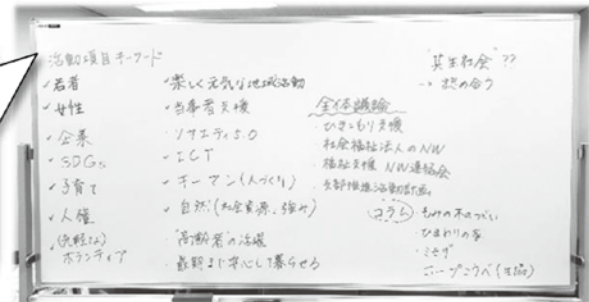 活動項目キーワード
✓若者
✓女性
✓企業
✓SDGs
✓子育て
✓人権
✓(気軽な)
ボランティア
✓楽しく元気な地域活動
✓当事者支援
・ソサエティ5.0
・ICT
・キーマン(人づくり)
・自然(社会資源、強み)
・"高齢者"の活躍
・最期まで安心して暮らせる
全体議論
・ひきこもり支援
・社会福祉法人のNW
・福祉支援NW連絡会
・支部推進活動計画
"共生社会"??
コラム
・もみの木のつどい
・ひまわりの家
・ミモザ